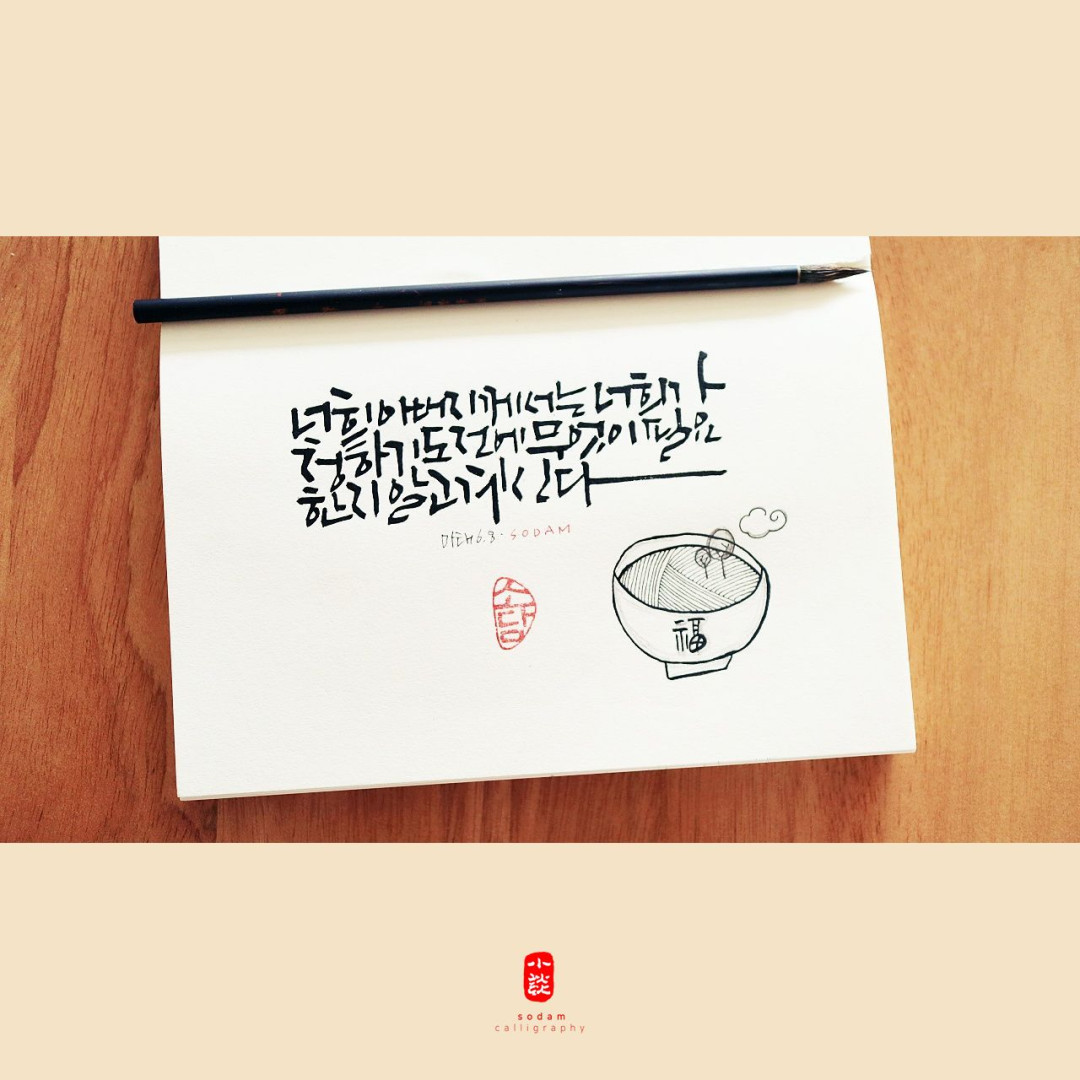 너희 아버지께서는 너희가
청하기도 전에 무엇이 필요
한지 알고 계신다
마태 6.8 · SODAM
소담
福
小談
sodam
calligraphy